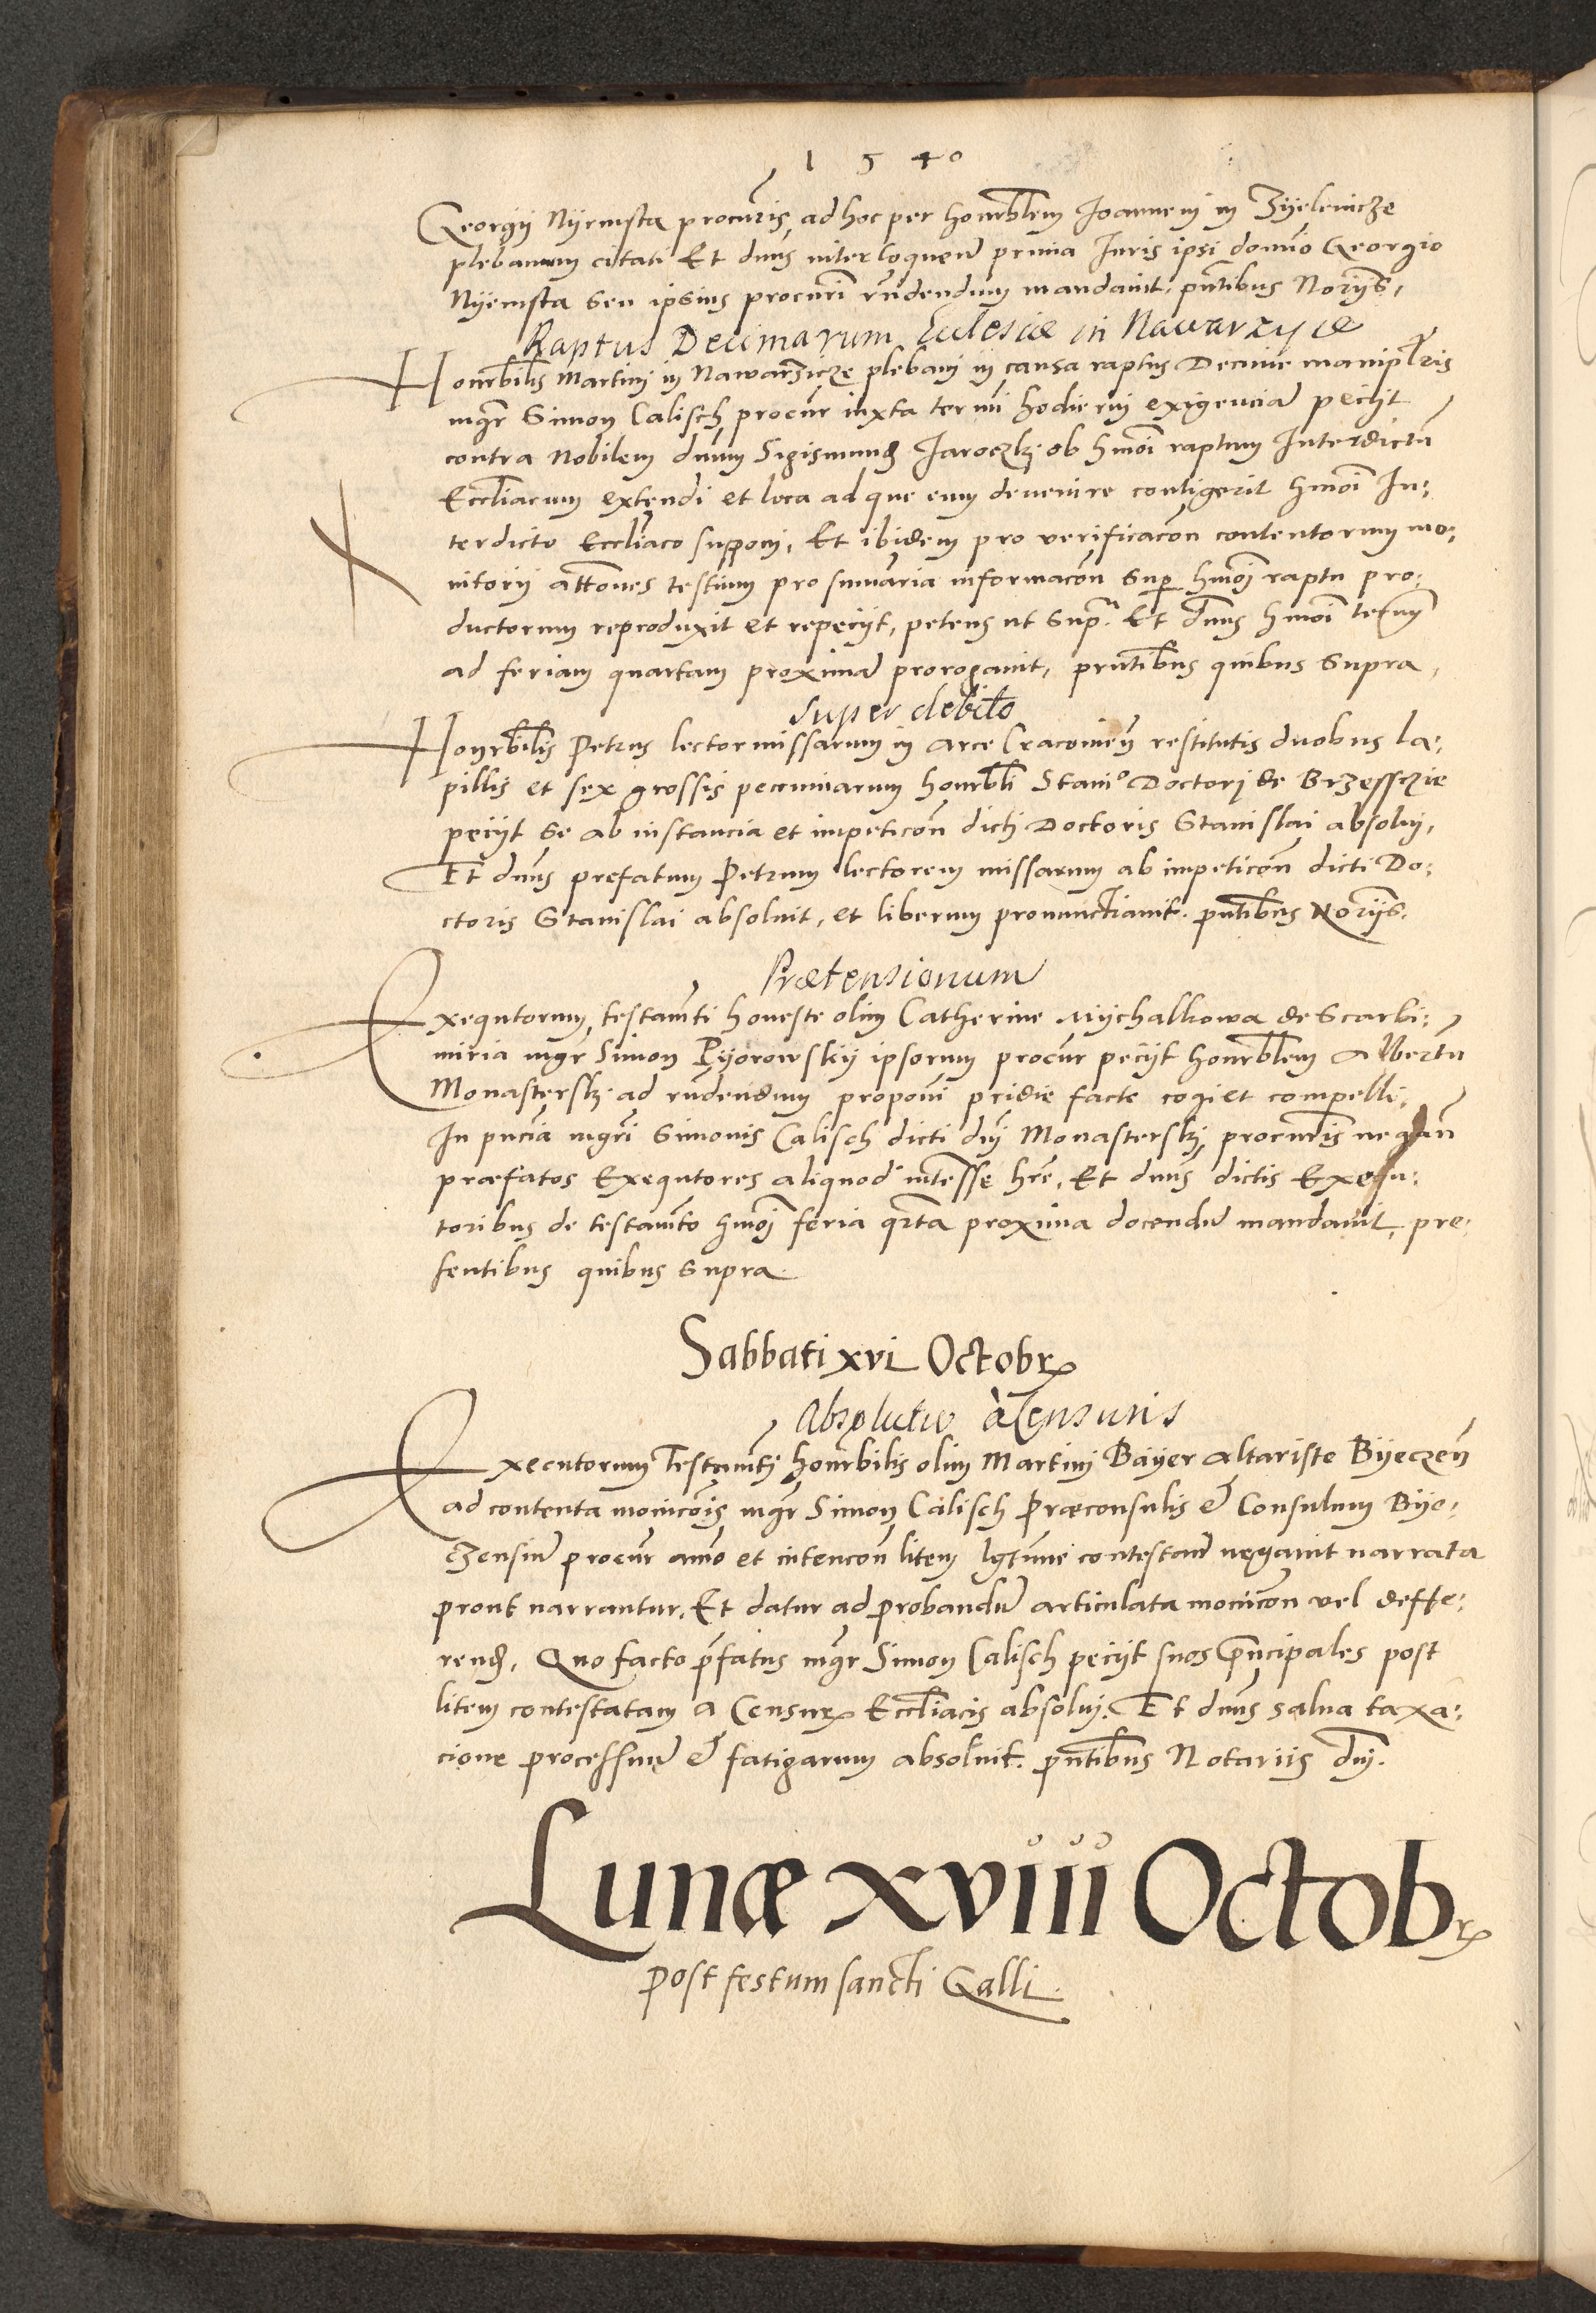 1540
Georgÿ Nÿemsta procur̄is ad hoc per honrb̄lem Joannem in Zÿelenicze
plebanum citati Et dn̄us interloquen̄ prima Juris ipsi domīo Georgio
Nÿemsta seu ipsius procur̄i rn̄dendum mandauit. pn̄tibus Norÿs,
Raptus Decimarum Eclesiæ in Nawarzycze
Honrb̄ilis Martini in Nawarzicze plebani in causa raptus Decime manipl̄ris
mgr̄ Simon Calisch procur̄ iuxta termi hodierni exigencia pecijt
contra Nobilem dn̄um Sigismund Jaroczkj ob hmōi raptum Interdictu
Eccl̄iarum extendi et loca ad que eum deuenire contigerit hmōi In:
terdicto Eccl̄iaco supponi, Et ibidem pro verificacōn contentorum mo:
nitorij att̄ones testium pro sum̄aria informacōn sup̱ hmōj raptu pro:
ductorum reproduxit et repecÿt, petens ut supr̄a. Et dn̄us hmōi term̄
ad feriam quartam proxima prorogauit, pn̄tibus quibus supra,
super debito
Honrb̄ilis Petrus lector missarum in arce Cracouien̄ restitutis duobus la:
pillis et sex grossis pecuniarum honrb̄li Staniº Doctorj de Brzessczie
pecÿt se ab instancia et impeticōn dicti Doctoris Stanislai absolui,
Et dn̄us prefatum Petrum lectorem missarum ab impeticōn dicti Do:
ctoris Stanislai absoluit, et liberum pronunctiauit. pn̄tibus Norÿs.
Prætensionum
Exequtorum testam̄ti honeste olim Catherine Mÿchalkowa de Scarbi:
miria mgr̄ Simon Pÿorowskÿ ipsorum procur̄ pecÿt honrb̄lem Albertu
Monasterskj ad rn̄dendum proponi pridie facte cogi et compelli.
In pn̄cia mgr̄i Simonis Calisch dicti dn̄j Monasterskj procur̄is negan̄
præfatos Exequtores aliquod int̄esse hr̄e, Et dn̄us dictis Exequ:
toribus de testam̄to hmōj feria qr̄ta proxima docendū mandauit, pre:
sentibus quibus supra.
Sabbati xvi Octobrꝭ
Absolutio à Censuris
Executorum Testam̄tj honrb̄ilis olim Martini Bayer altariste Bÿeczen̄
ad contenta monicōis mgr̄ Simon Calisch Præconsulis & Consulum Bÿe:
czensiū procur̄ an̄o et intencōn litem lgt̄ime contestan̄ negauit narrata
prout narrantur. Et datur ad probandū articulata monicōn vel deffe:
rend̄. Quo facto pr̄fatus mgr̄ Simon Calisch pecÿt suos prn̄cipales post
litem contestatam a Censurꝭ Eccl̄iacis absolui. Et dn̄us salua taxa:
cione processuū & fatigarum absoluit. pn̄tibus Notariis dn̄j.
Lunæ xviii Octobrꝭ
post festum sancti Galli